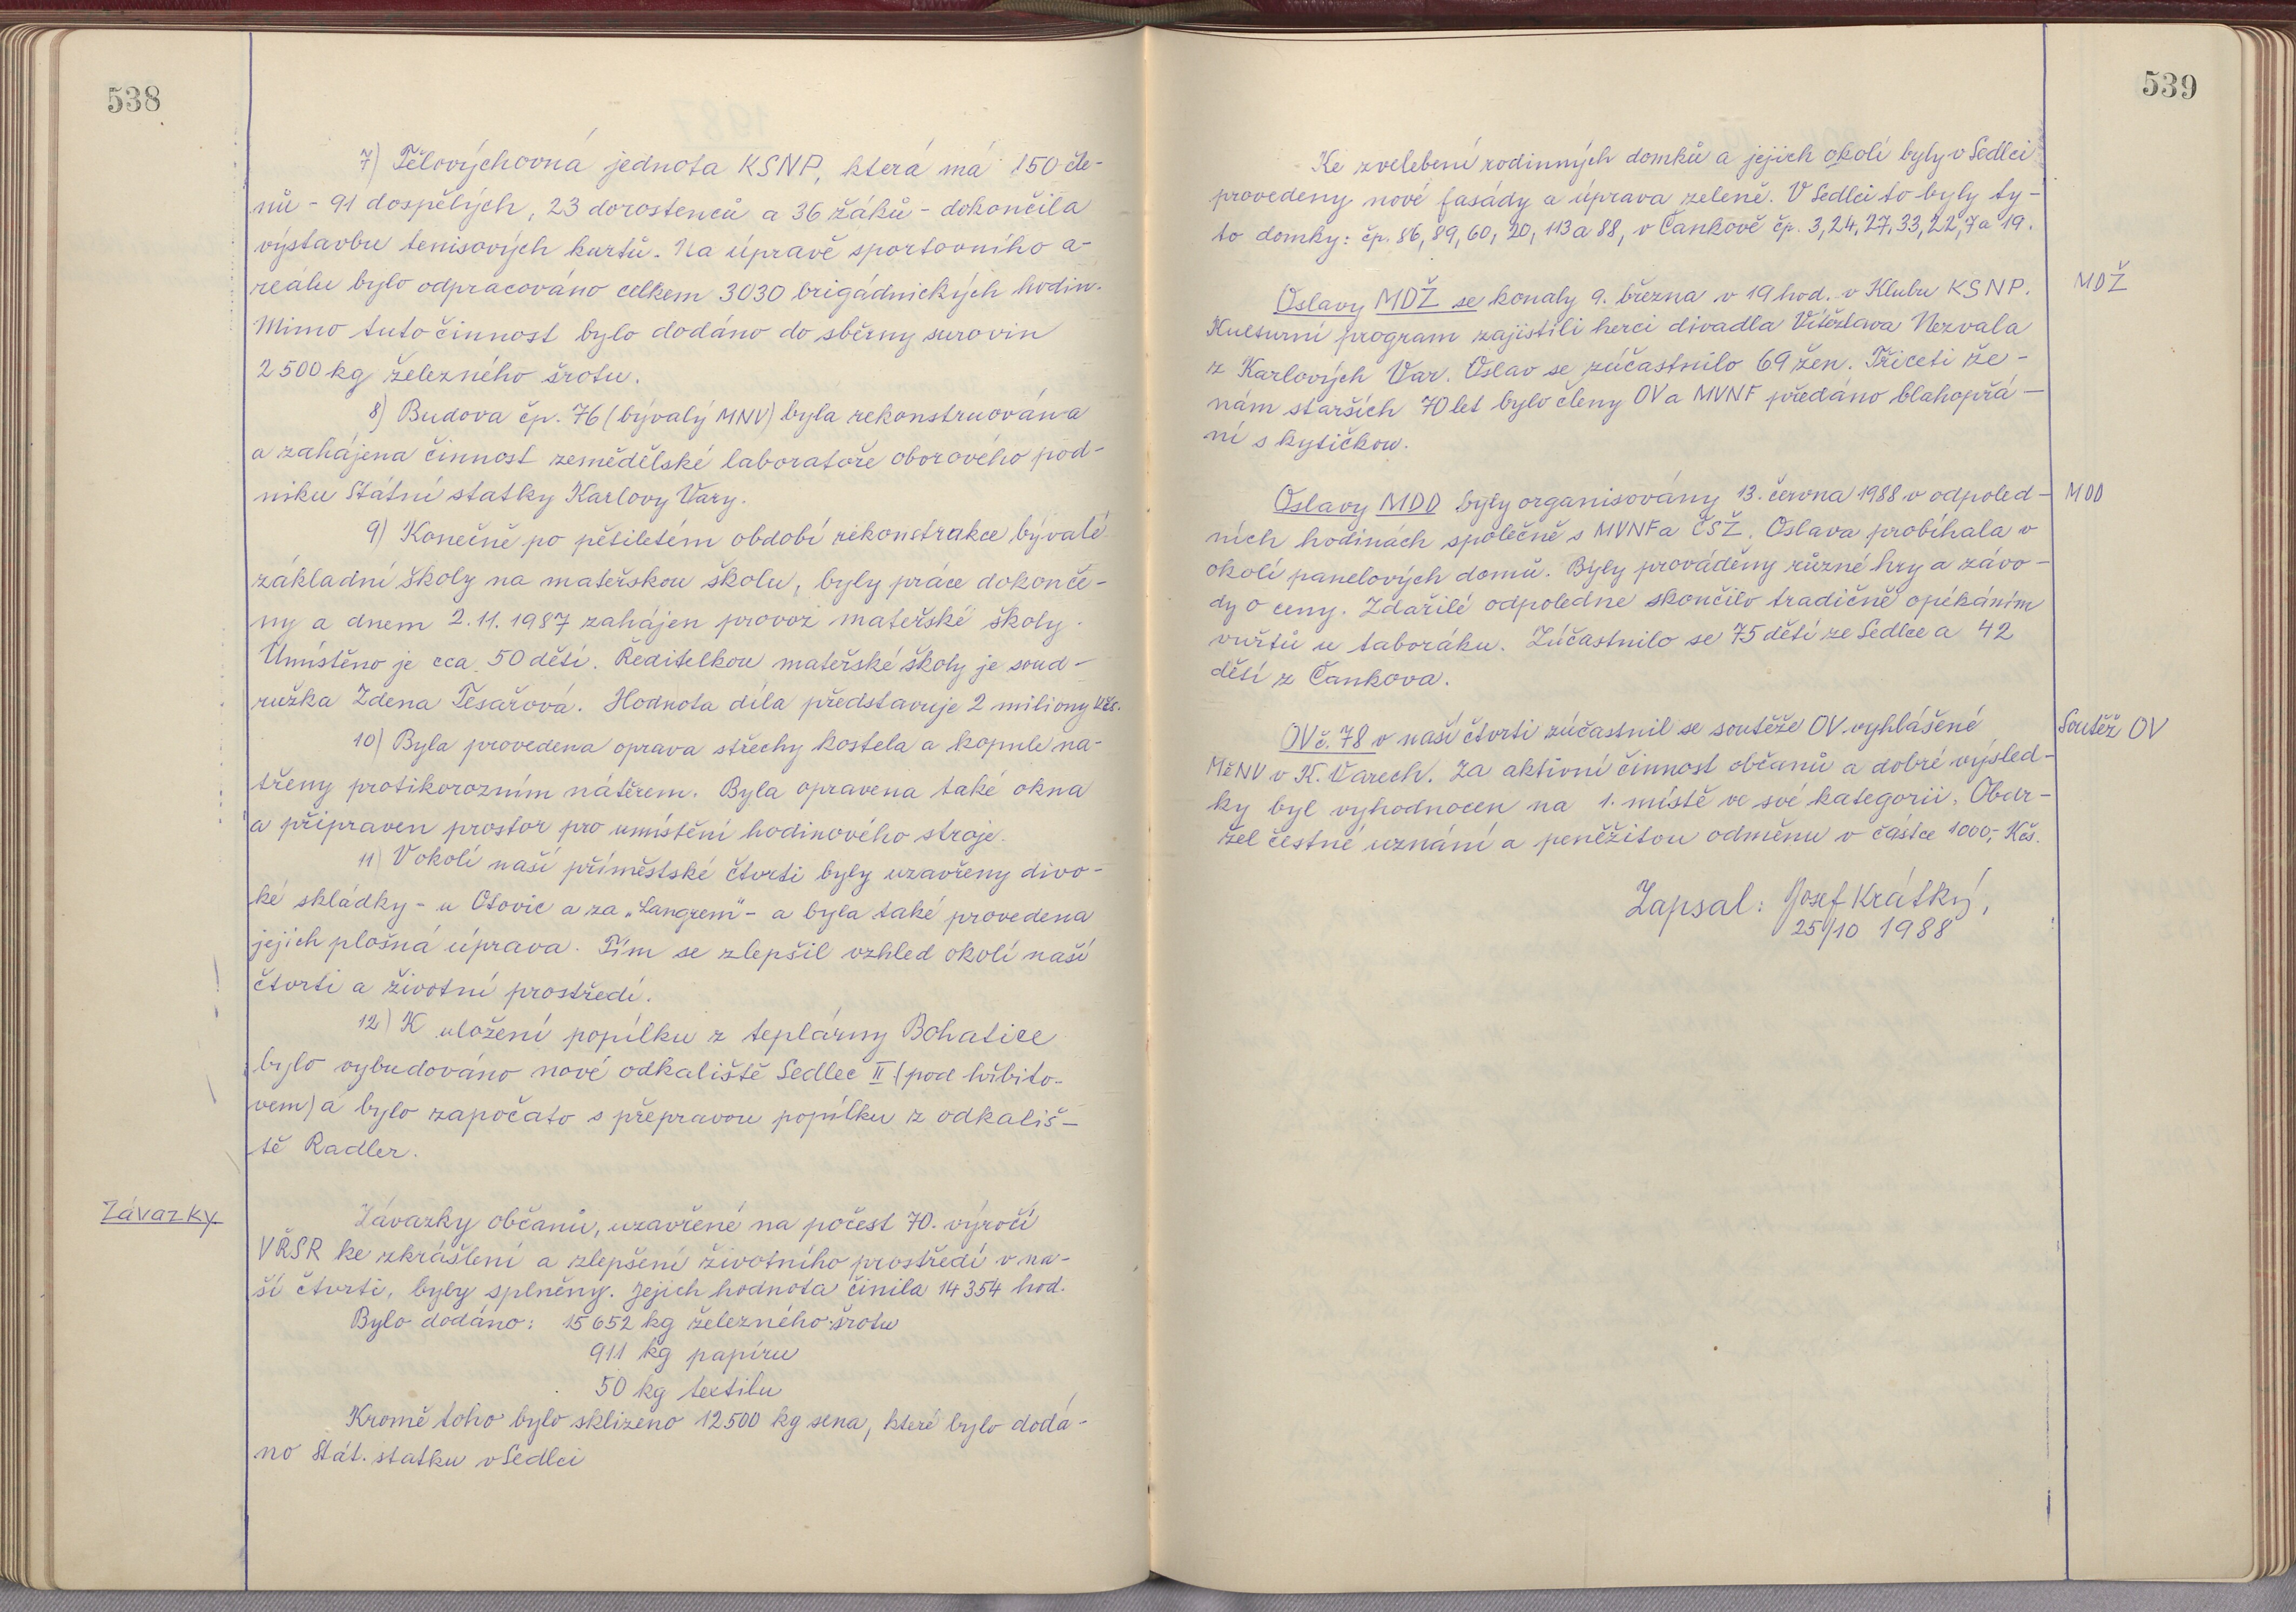 538
7) Tělovýchovná jednota KSNP, která má 150 čle-
nů - 91 dospělých, 23 dorostenců a 36 žáků - dokončila
výstavbu tenisových kurtů. Na úpravě sportovního a-
reálu bylo odpracováno celkem 3030 brigádnických hodin.
Mimo tuto činnost bylo dodáno do sběrny surovin
2500 kg železného šrotu.
8) Budova čp. 76 (bývalý MNV) byla rekonstruována
a zahájena činnost zemědělské laboratoře oborového pod-
niku Státní statky Karlovy Vary.
9) Konečně po pětiletém období rekonstrukce bývalé
základní školy na mateřskou školu, byly práce dokonče-
ny a dnem 2.11.1987 zahájen provoz mateřské školy.
Umístěno je cca 50 dětí. Ředitelkou mateřské školy je soud-
ružka Zdena Tesařová. Hodnota díla představuje 2 miliony Kčs.
10) Byla provedena oprava střechy kostela a kopule na-
třeny protikorozním nátěrem. Byla opravena také okna
a připraven prostor pro umístění hodinového stroje.
11) V okolí naší příměstské čtvrti byly uzavřeny divo-
ké skládky - u Otovic a za „Langrem" - a byla také provedena
jejich plošná úprava. Tím se zlepšil vzhled okolí naší
čtvrti a životní prostředí.
12) K uložení popílku z teplárny Bohatice
bylo vybudováno nové odkaliště Sedlec II (pod hřbito-
vem) a bylo započato s přepravou popílku z odkališ-
tě Radler.
Závazky
Závazky občanů, uzavřené na počest 70. výročí
VŘSR ke zkrášlení a zlepšení životního prostředí v na-
ší čtvrti, byly splněny. Jejich hodnota činila 14 354 hod.
Bylo dodáno: 15 652 kg železného šrotu
911 kg papíru
50 kg textilu
Kromě toho bylo sklizeno 12500 kg sena, které bylo dodá-
no Stát. statku v Sedlci
539
Ke zvelebení rodinných domků a jejich okolí byly v Sedlci
provedeny nové fasády a úprava zeleně. V Sedlci to byly ty-
to domky: čp. 86, 89, 60, 20, 113 a 88, v Čankově čp. 3, 24, 27, 33, 22, 7 a 19.
MDŽ
Oslavy MDŽ se konaly 9. března v 19 hod. v Klubu KSNP.
Kulturní program zajistili herci divadla Vítězslava Nezvala
z Karlových Var. Oslav se zúčastnilo 69 žen. Třiceti že-
nám starších 70 let bylo členy OV a MVNF předáno blahopřá-
ní s kytičkou.
MDD
Oslavy MDD byly organisovány 13. června 1988 v odpoled-
ních hodinách společně s MVNF a ČSŽ. Oslava probíhala v
okolí panelových domů. Byly prováděny různé hry a závo-
dy o ceny. Zdařilé odpoledne skončilo tradičně opékáním
vuřtů u taboráku. Zúčastnilo se 75 dětí ze Sedlce a 42
dětí z Čankova.
Soutěž OV
OV č. 78 v naší čtvrti zúčastnil se soutěže OV vyhlášené
MěNV v K. Varech. Za aktivní činnost občanů a dobré výsled-
ky byl vyhodnocen na 1. místě ve své kategorii. Obdr-
žel čestné uznání a peněžitou odměnu v částce 1000,- Kčs.
Zapsal: Josef Krátký,
25/10 1988